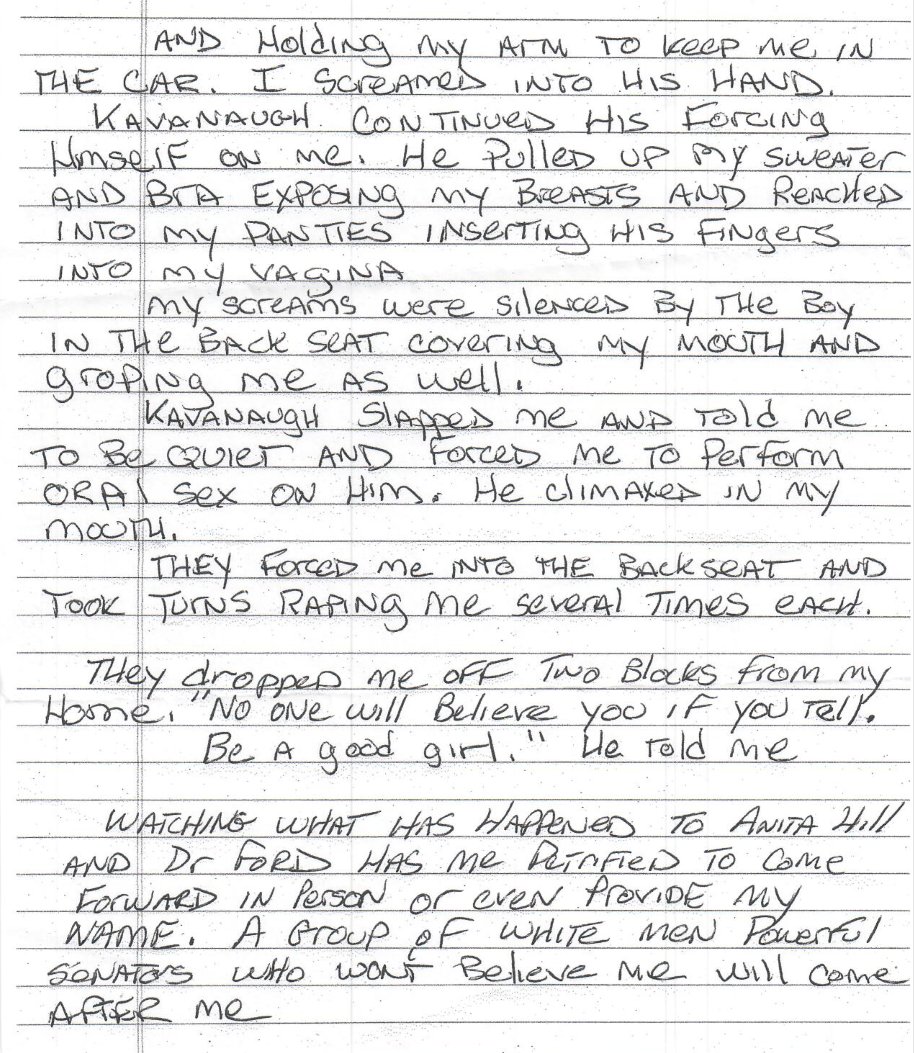 AND Holding my ARM TO keep me IN
THE CAR. I SCREAMED INTO HIS HAND.
KAVANAUGH CONTINUED HIS FORCING
HIMSELF ON me. He Pulled UP MY SWEATER
AND BRA EXPOSING my BREASTS AND REACHED
INTO my PANTIES INSERTING HIS FINGERS
INTO my VAGINA
my SCREAMS were SILENCED By THE Boy
IN THE BACK SEAT COVERING my MOUTH AND
groping me AS well.
KAVANAUGH Slapped me AND Told me
TO Be QUIET AND FORCED me TO Perform
ORAl Sex ON HIM. He climaxed IN MY
MOUTH.
THEY FORCED me INTO THE BACKSEAT AND
TOOK TURNS RAPING me several Times eacH.
THey dropped me OFF Two Blocks from my
Home. "NO ONE will Believe you IF YOU Tell.
Be A good girl." He Told me
WATCHING WHAT HAS HAPPENED TO ANITA Hill
AND Dr FORD HAS me PETRIFIED TO Come
FORWARD IN Person or even PROVIDE My
NAME. A Group oF WHITE MEN Powerful
SENATORS WHO WONT Believe me will come
AFTER me